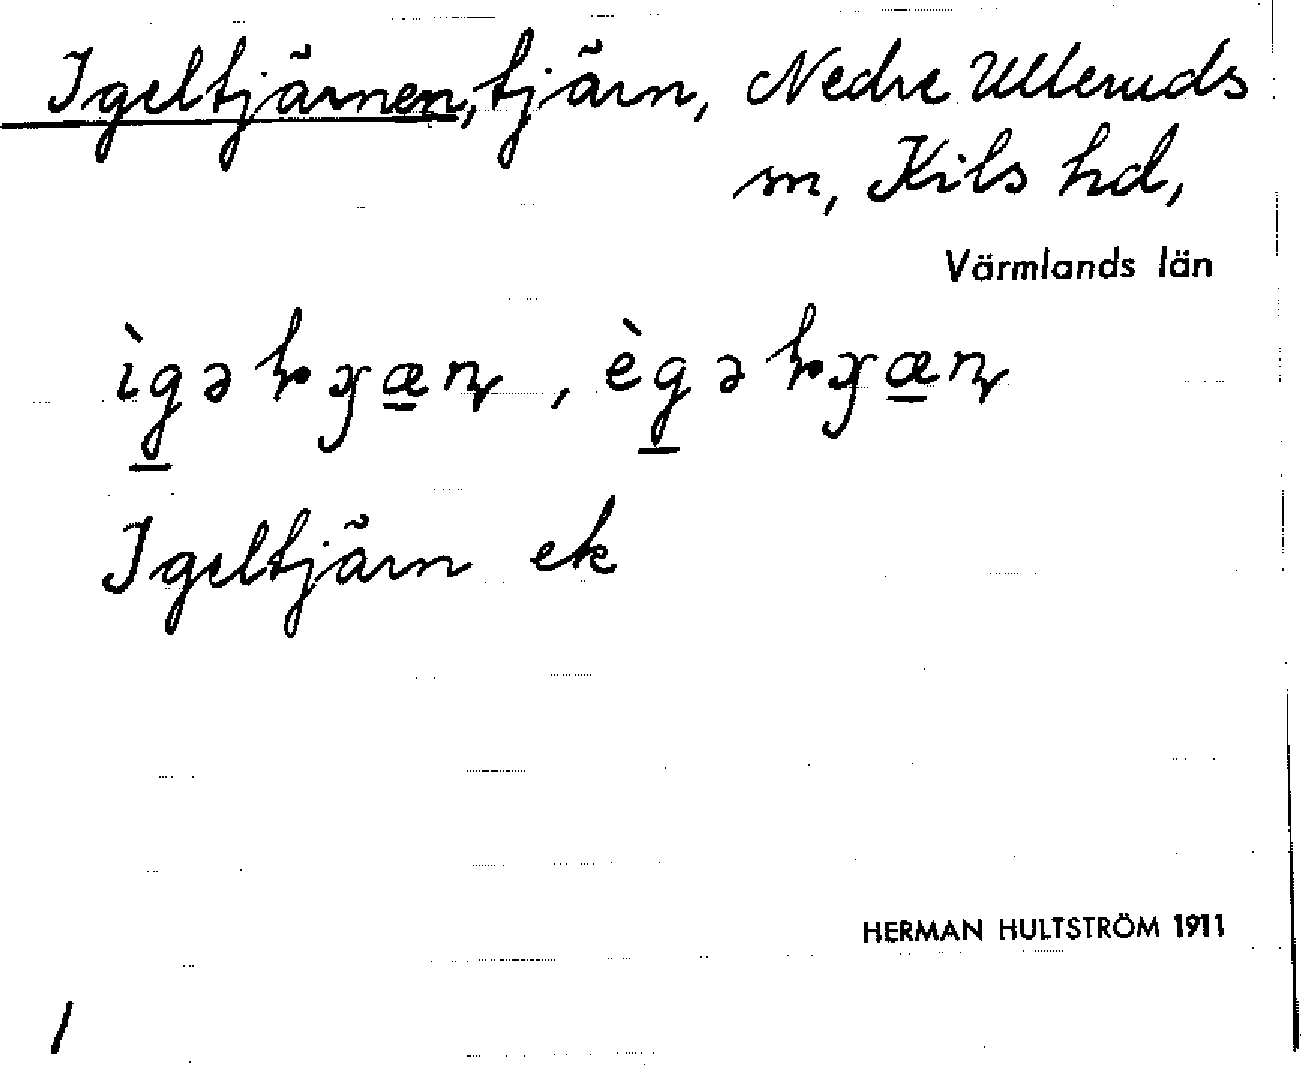 Igeltjärnen, tjärn, Nedre Ulleruds
sn, Kils hd,
Värmlands län
Igeltjärn ek
HERMAN HULTSTRÖM 1911
1